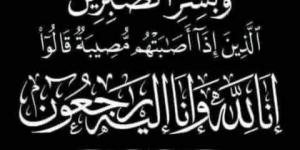 وَبَشِّرِ الصَّابِرِينَ
الَّذِينَ إِذَا أَصَابَتْهُم مُّصِيبَةٌ قَالُوا
إنا لله وإنا إليه راجعون